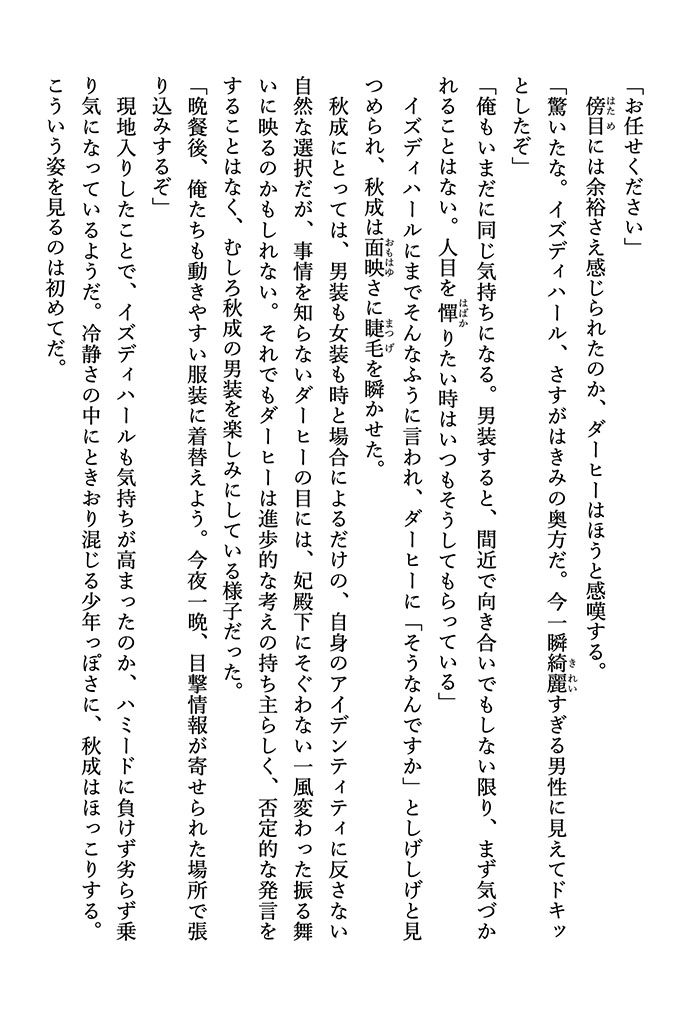 「お任せください」
　傍目には余裕さえ感じられたのか、ダーヒーはほうと感嘆する。
「驚いたな。イズディハール、さすがはきみの奥方だ。今一瞬綺麗すぎる男性に見えてドキッ
としたぞ」
「俺もいまだに同じ気持ちになる。男装すると、間近で向き合いでもしない限り、まず気づか
れることはない。人目を憚りたい時はいつもそうしてもらっている」
　イズディハールにまでそんなふうに言われ、ダーヒーに「そうなんですか」としげしげと見
つめられ、秋成は面映さに睫毛を瞬かせた。
　秋成にとっては、男装も女装も時と場合によるだけの、自身のアイデンティティに反さない
自然な選択だが、事情を知らないダーヒーの目には、妃殿下にそぐわない一風変わった振る舞
いに映るのかもしれない。それでもダーヒーは進歩的な考えの持ち主らしく、否定的な発言を
することはなく、むしろ秋成の男装を楽しみにしている様子だった。
「晩餐後、俺たちも動きやすい服装に着替えよう。今夜一晩、目撃情報が寄せられた場所で張
り込みするぞ」
　現地入りしたことで、イズディハールも気持ちが高まったのか、ハミードに負けず劣らず乗
り気になっているようだ。冷静さの中にときおり混じる少年っぽさに、秋成はほっこりする。
こういう姿を見るのは初めてだ。